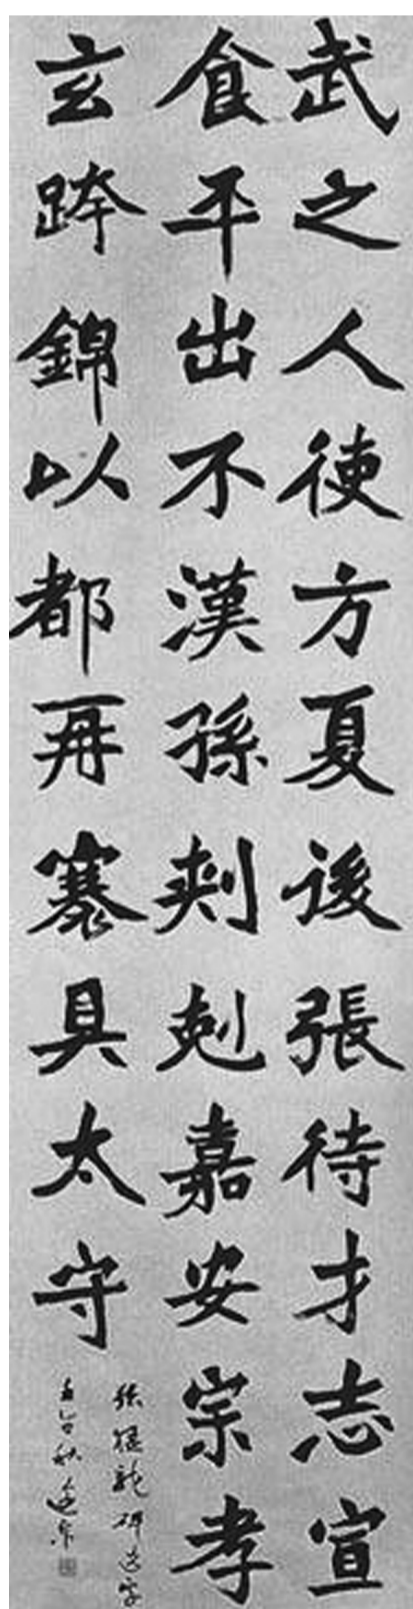 武之人使方夏後張待才志宣
食平出不漢孫刺剋嘉安宗孝
玄跨錦以都再褰具太守
張猛龍碑選字
秋